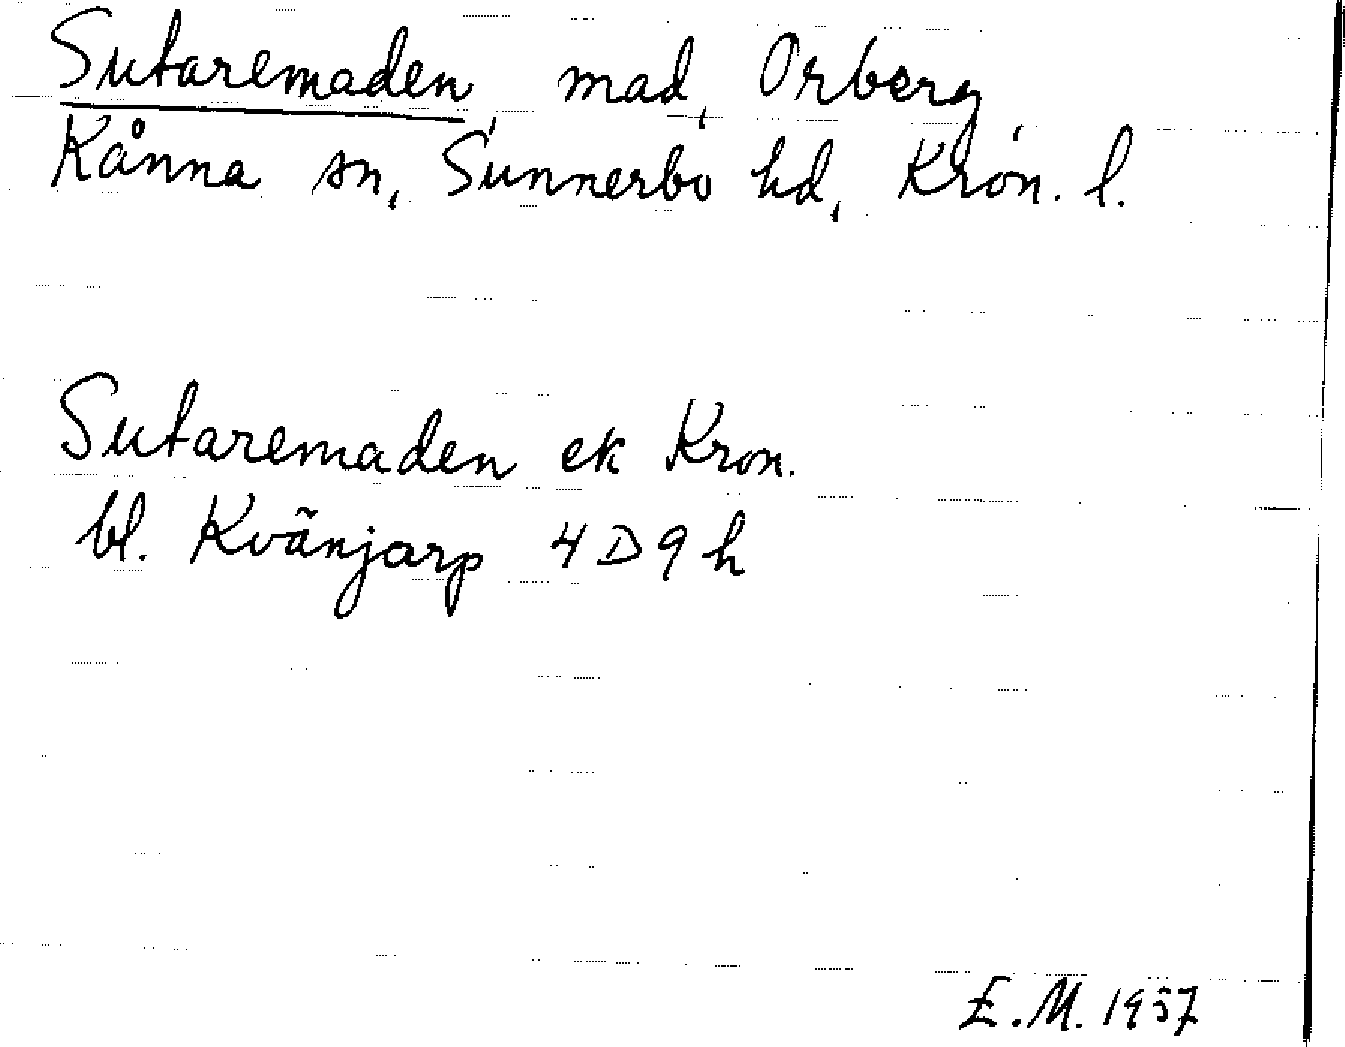 Sutaremaden, mad, Orberg,
Kånna sn, Sunnerbo hd, Kron. l.
Sutaremaden ek Kron.
bl. Kvänjarp 4D9h
E.M. 1957